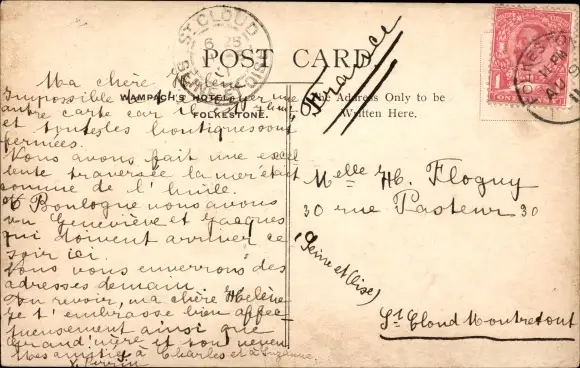 POST CARD
WAMPACH'S HOTEL
FOLKESTONE.
The Address Only to be
Written Here.
France
ST CLOUD
FOLKESTONE
ONE PENNY
Ma chère Hélène
Impossible de t'envoyer une
autre carte car il est
et toutes les boutiques sont
fermées.
Nous avons fait une excel
lente traversée la mer était
comme de l'huile.
A Boulogne nous avons
vu Geneviève et Jacques
qui doivent arriver ce
soir ici.
Nous vous enverrons des
adresses demain.
Au revoir, ma chère Hélène
je t'embrasse bien affec
tueusement ainsi que
Grand'mère et ton neveu
Mes amitiés à Charles et à Suzanne.
Melle H. Flogny
30 rue Pasteur 30
(Seine et Oise)
St Cloud Montretout